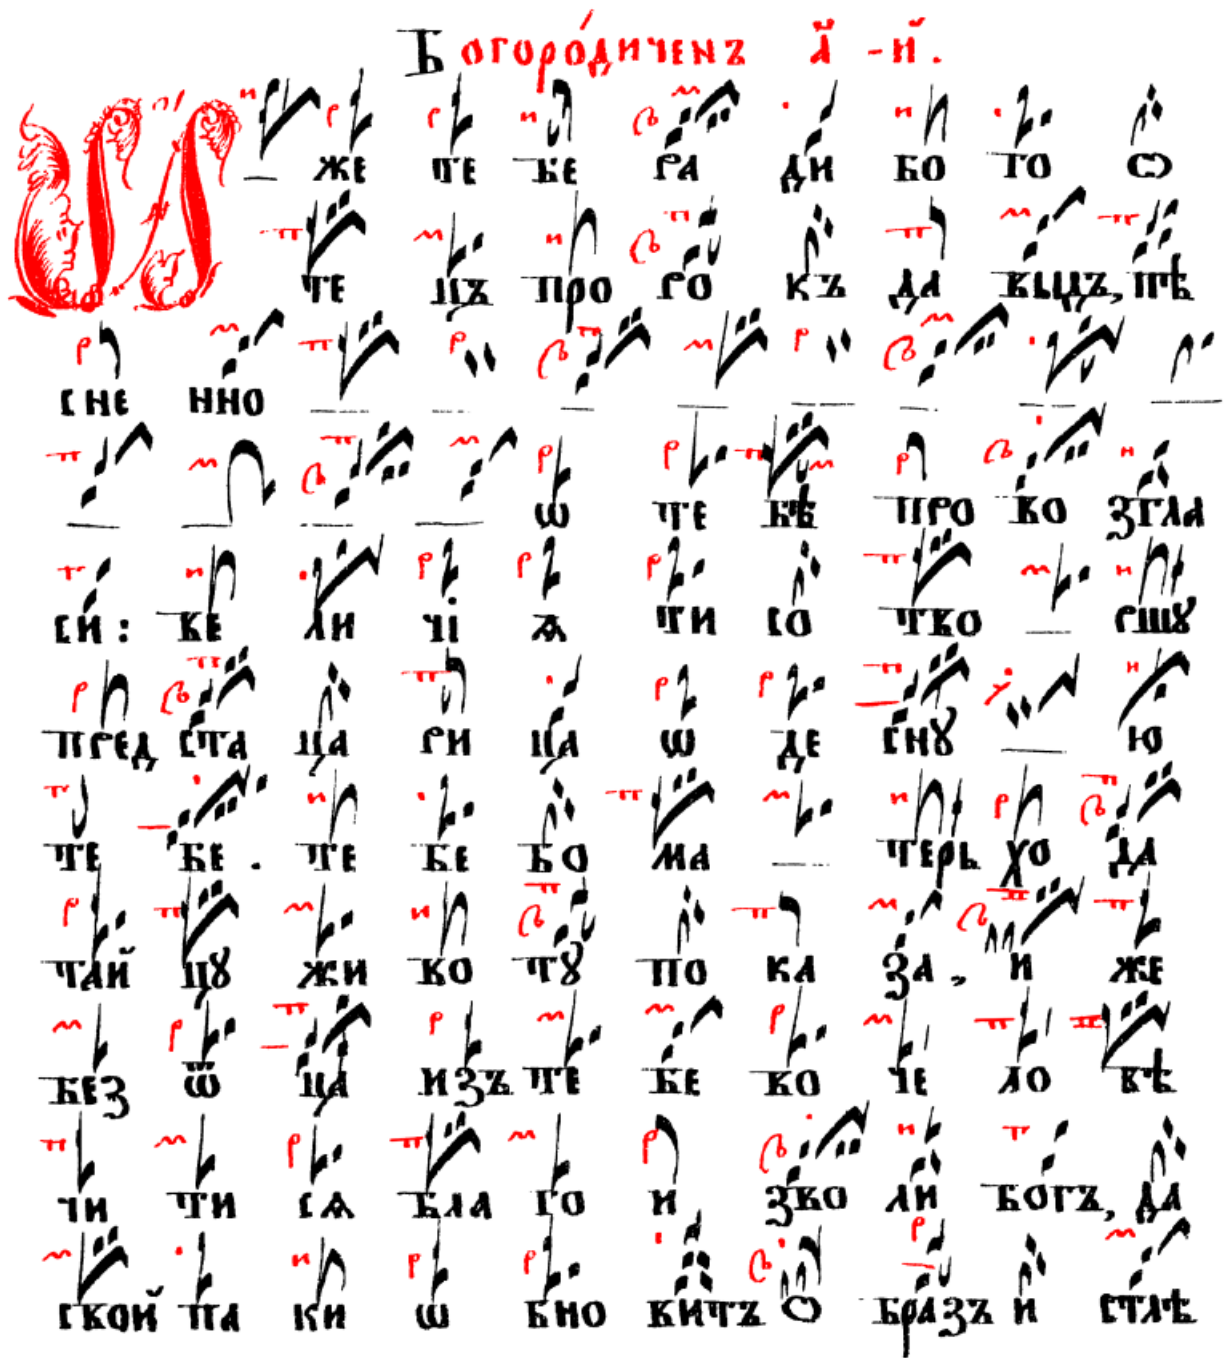 Богоро́диченъ а҃ -й.
И же тебе ра ди бо го ѻ
те цъ про ро къ да выдъ, пѣ
сне нно
ѡ тебѣ про возгла
си: ве ли чі ѧ ти со тво ршꙋ
пред ста ца ри ца ѡ де снꙋ ю
те бе. те бе бо ма терь хо да
тай цꙋ жи во тꙋ по ка за, и же
без ѿ ца изъ те бе во че ло вѣ
чи ти сѧ бла го и зво ли богъ, да
свой па ки ѡ бно витъ ѻ бразъ и стлѣ